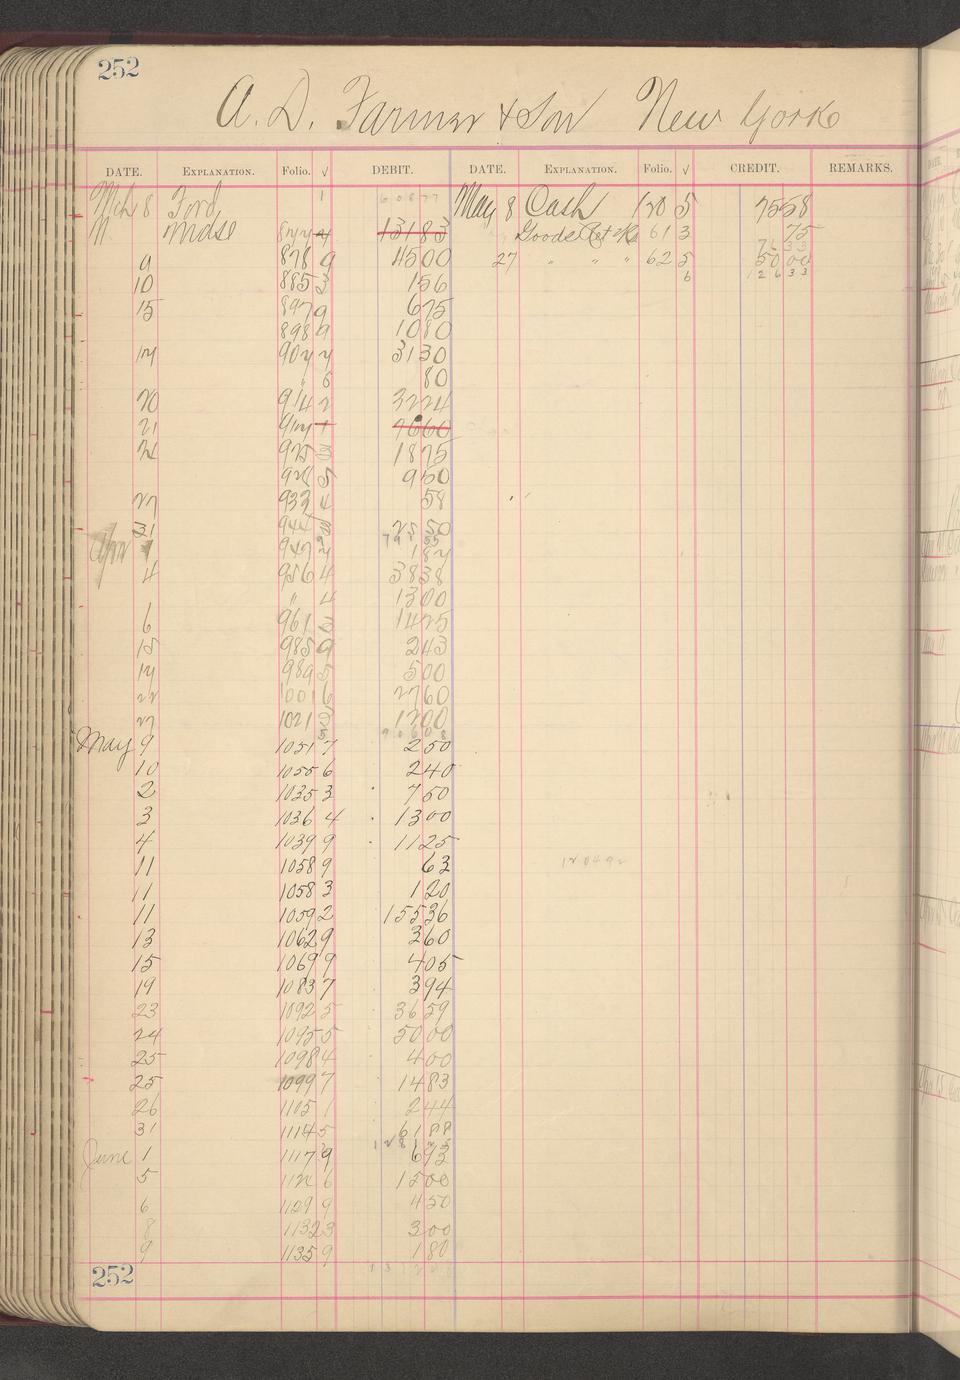 252
A. D. Farmer & Son New York
DATE. EXPLANATION. Folio. √ DEBIT. DATE. EXPLANATION. Folio. √ CREDIT. REMARKS.
Mch 8 Ford 1 60877 May 8 Cash 120 5 7558
Mdse 4 13183 Goods Ret 61 3 75
9 878 9 4500 27 " " " 62 5 5000
10 885 3 156 6 12633
15 897 9 675
898 9 1080
3130
6 80
20 914 2 3224
21 1
925 3 1875
5 950
27 933 4 58
31 944 3 2550
Apr
4 956 4 3838
" 4 1300
6 961 3 1425
15 985 9 243
989 5 500
22 1001 6 2760
27 1021 3 1200
May 9 1051 7 250
10 1055 6 240
2 1035 3 750
3 1036 4 1300
4 1039 9 1125
11 1058 9 63
11 1058 3 120
11 1059 2 15536
13 1062 9 360
15 1069 9 405
19 1083 7 394
23 1092 5 3659
24 1095 5 5000
25 1098 4 400
25 1099 7 1483
26 1105 1 244
31 1114 5
June 1 1117 9 693
5 1126 6 1500
6 1129 9 450
8 1132 3 300
9 1135 9 180
252